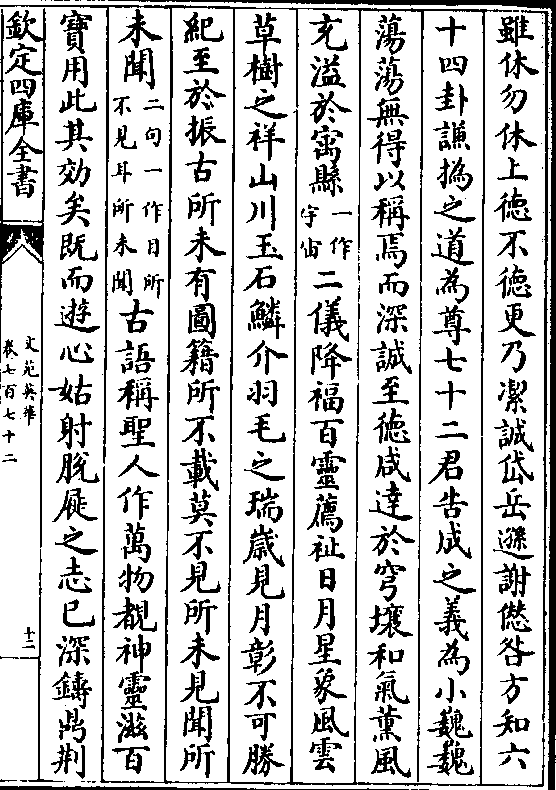 雖休勿休上徳不徳更乃潔誠岱岳遜謝愆咎方知六
十四卦謙撝之道為尊七十二君告成之義為小巍巍
蕩蕩無得以稱焉而深誠至徳咸達於穹壤和氣薫風
充溢於㝢縣一作宇宙二儀降福百靈薦祉日月星象風雲
草樹之祥山川玉石鱗介羽毛之瑞嵗見月彰不可勝
紀至於振古所未有圖籍所不載莫不見所未見聞所
未聞二句一作目所不見耳所未聞古語稱聖人作萬物覩神靈滋百
寳用此其効矣既而遊心姑射脫屣之志已深鑄鼎荆
欽定四庫全書
文苑英華
卷七百七十二
十二